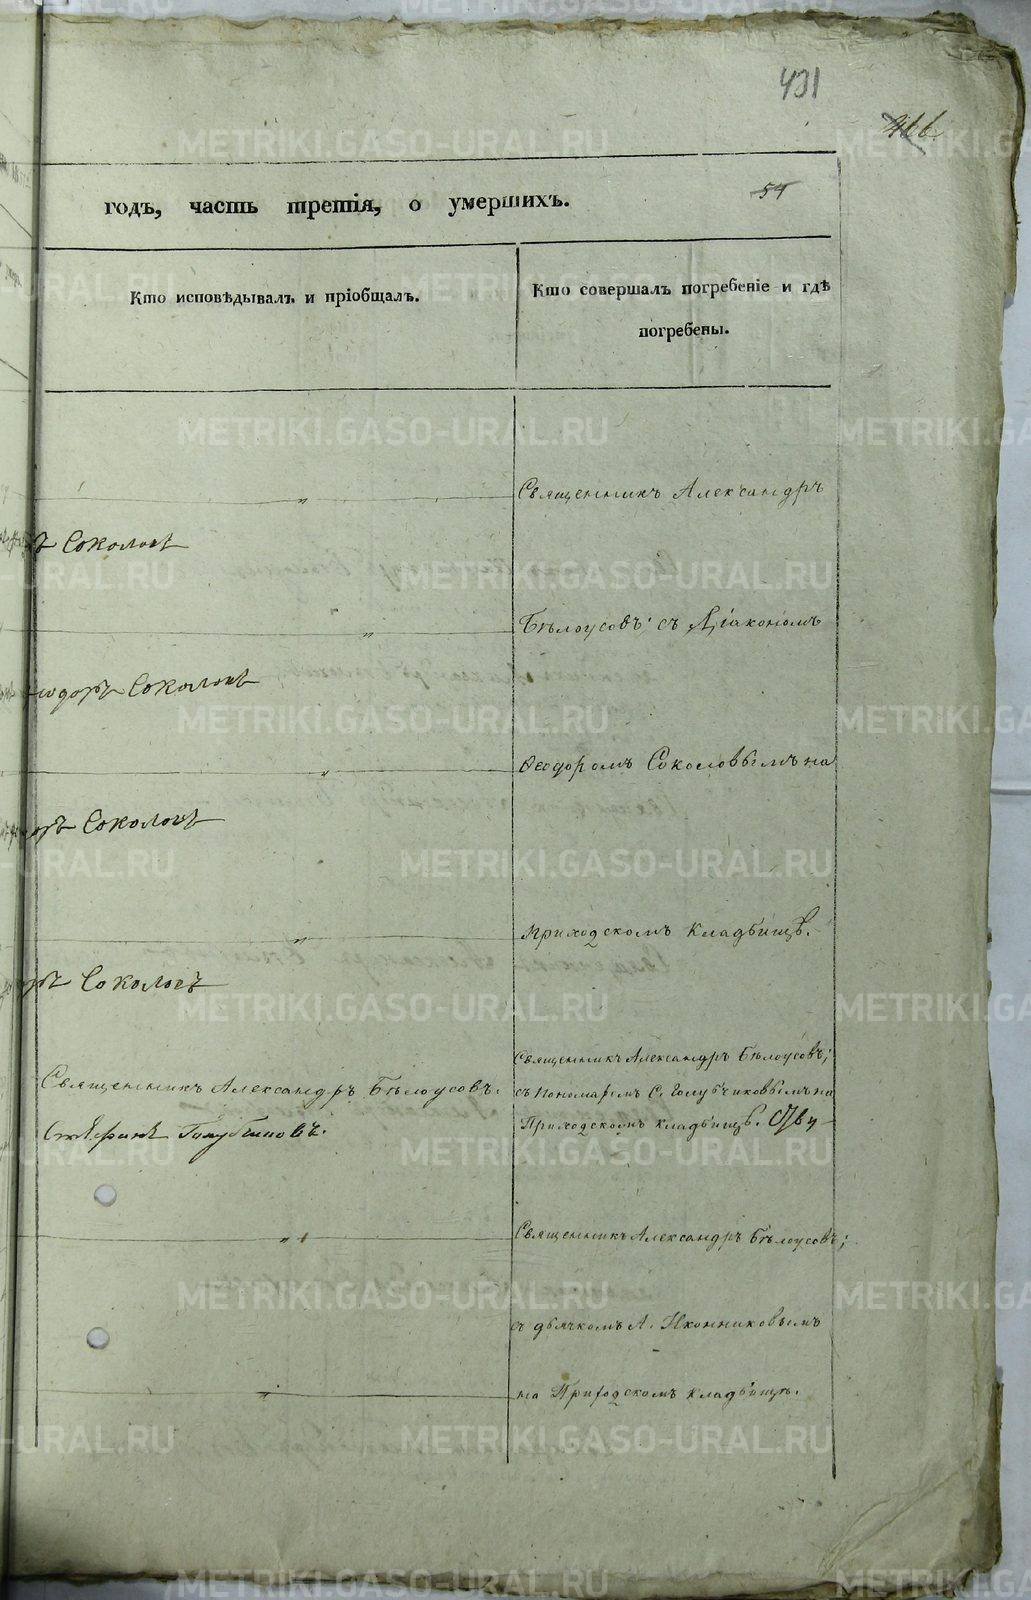 431
466.
54
годъ, часть третія, о умершихъ.
Кто исповѣдывалъ и пріобщалъ.
Кто совершалъ погребеніе и гдѣ
погребены.
Священникъ Александръ
Соколовъ
Бѣлоусовъ; съ Діакономъ
Соколовъ
Ѳеодоромъ Соколовымъ на
Соколовъ
приходскомъ кладбищѣ.
Соколовъ
Священникъ Александръ Бѣлоусовъ;
Священникъ Александръ Бѣлоусовъ.
съ пономаремъ С. Голубчиковымъ на
Приходскомъ кладбищѣ.
Стефанъ Голубчиковъ.
Священникъ Александръ Бѣлоусовъ;
съ дьячкомъ А. Иконниковымъ
на Приходскомъ кладбищѣ.
METRIKI.GASO-URAL.RU